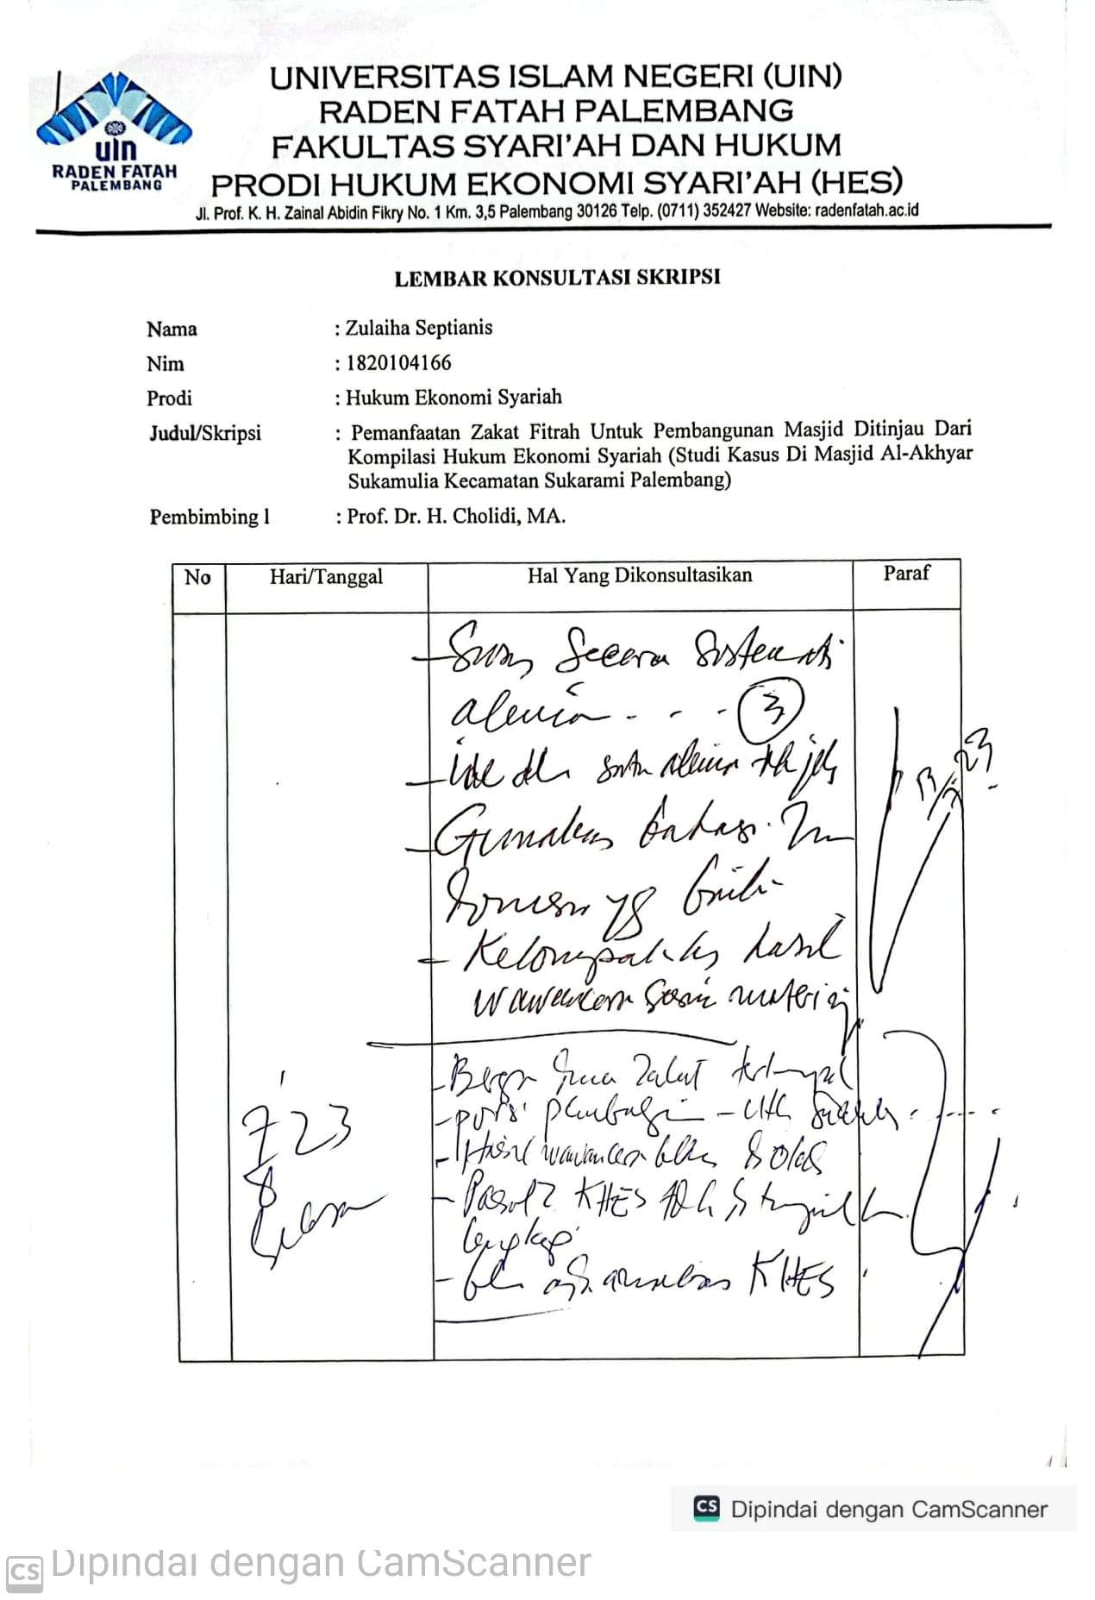 uin
RADEN FATAH
PALEMBANG
UNIVERSITAS ISLAM NEGERI (UIN)
RADEN FATAH PALEMBANG
FAKULTAS SYARI'AH DAN HUKUM
PRODI HUKUM EKONOMI SYARI'AH (HES)
Jl. Prof. K. H. Zainal Abidin Fikry No. 1 Km. 3,5 Palembang 30126 Telp. (0711) 352427 Website: radenfatah.ac.id
LEMBAR KONSULTASI SKRIPSI
Nama : Zulaiha Septianis
Nim : 1820104166
Prodi : Hukum Ekonomi Syariah
Judul/Skripsi : Pemanfaatan Zakat Fitrah Untuk Pembangunan Masjid Ditinjau Dari
Kompilasi Hukum Ekonomi Syariah (Studi Kasus Di Masjid Al-Akhyar
Sukamulia Kecamatan Sukarami Palembang)
Pembimbing I : Prof. Dr. H. Cholidi, MA.
No Hari/Tanggal Hal Yang Dikonsultasikan Paraf
- Susun Secara Sistematis
alenia - - - 3
- ide dlm satu alenia
- Gunakan bahasa
yg baik
- Kelompokkan hasil
wawancara materi
- zakat
- porsi
- Hasil wawancara
- Pasal2 KHES
lengkap
- KHES
7 23
8
Selasa
23
CS Dipindai dengan CamScanner
CS Dipindai dengan CamScanner